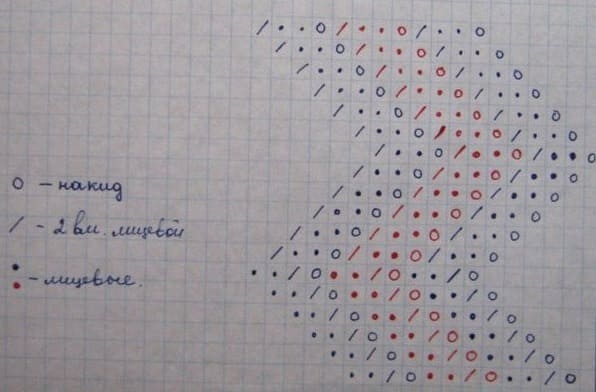 o - накид
/ - 2 вм. лицевой
• - лицевые.